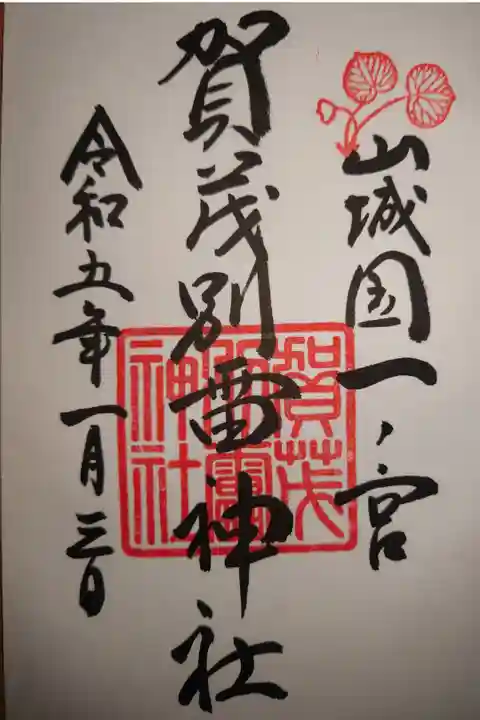 山城国一、宮
賀茂別雷神社
令和五年一月三日
賀茂
別雷
神社